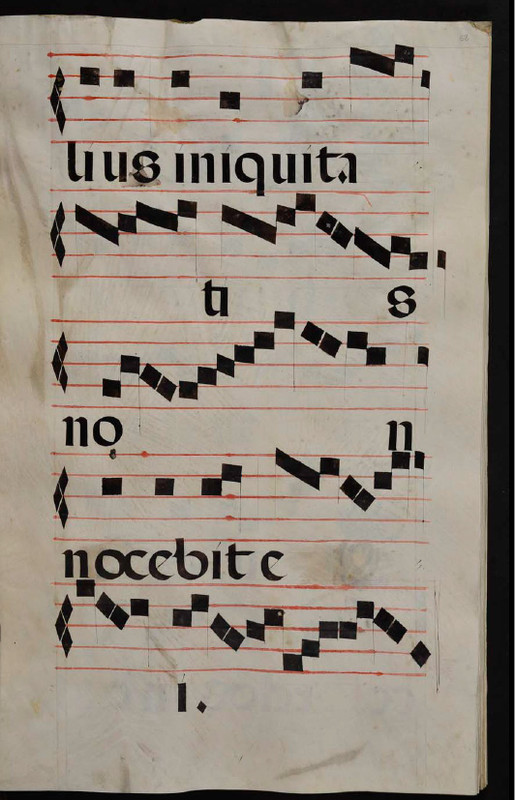 lius iniquita
ti s
no n
nocebit e
i.